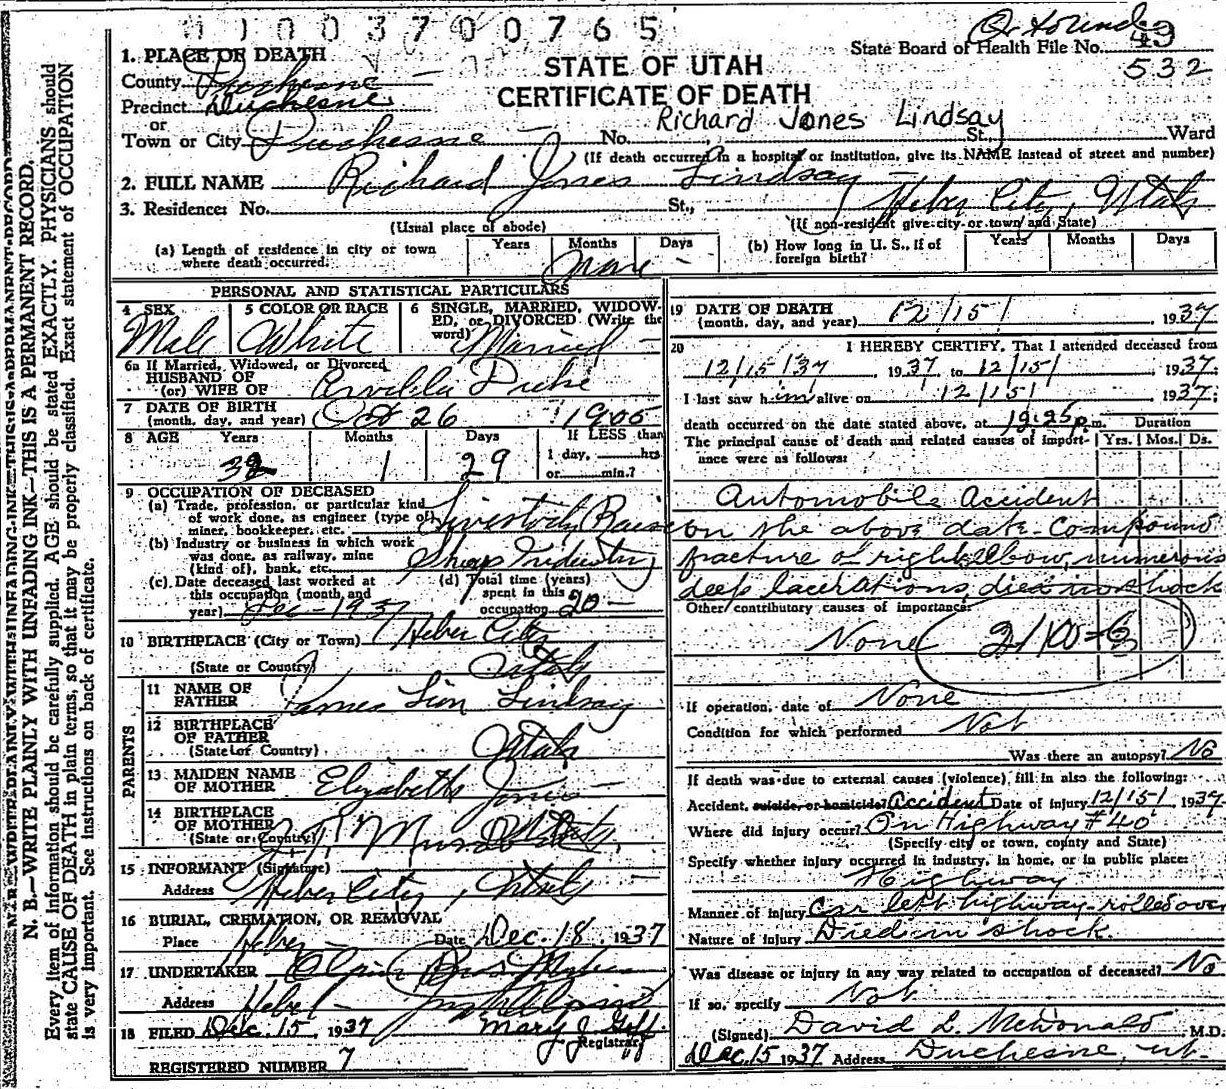 11003700765
State Board of Health File No. 49
532
STATE OF UTAH
CERTIFICATE OF DEATH
1. PLACE OF DEATH
County Duchesne
Precinct Duchesne
or
Town or City Duchesne No. St. Ward
Richard Jones Lindsay
(If death occurred in a hospital or institution, give its NAME instead of street and number)
2. FULL NAME Richard Jones Lindsay
3. Residence: No. St., Heber City, Utah
(Usual place of abode) (If non-resident give city or town and State)
(a) Length of residence in city or town where death occurred. Years Months Days None
(b) How long in U. S., if of foreign birth? Years Months Days
PERSONAL AND STATISTICAL PARTICULARS
4 SEX Male
5 COLOR OR RACE White
6 SINGLE, MARRIED, WIDOWED, or DIVORCED (Write the word) Married
6a If Married, Widowed, or Divorced
HUSBAND OF
(or) WIFE OF
7 DATE OF BIRTH
(month, day, and year) Oct 26 1905
8 AGE Years Months Days If LESS than
32 1 29 1 day, hrs
or min.?
9 OCCUPATION OF DECEASED
(a) Trade, profession, or particular kind
of work done, as engineer (type of)
miner, bookkeeper, etc. Livestock Raise
(b) Industry or business in which work
was done, as railway, mine
(kind of), bank, etc. Sheep Industry
(c) Date deceased last worked at
this occupation (month and
year) Dec - 1937
(d) Total time (years)
spent in this
occupation 20 -
10 BIRTHPLACE (City or Town) Heber City
(State or Country) Utah
PARENTS
11 NAME OF
FATHER James Lindsay
12 BIRTHPLACE
OF FATHER
(State or Country) Utah
13 MAIDEN NAME
OF MOTHER Elizabeth Jones
14 BIRTHPLACE
OF MOTHER
(State or Country) Utah
15 INFORMANT (Signature)
Address Heber City, Utah
16 BURIAL, CREMATION, OR REMOVAL
Place Heber Date Dec. 18, 1937
17 UNDERTAKER
Address Heber
18 FILED Dec. 15, 1937 Mary J. Goff
Registrar
REGISTERED NUMBER 7
19 DATE OF DEATH
(month, day, and year) 12/15/ 1937
20 I HEREBY CERTIFY, That I attended deceased from
12/15/37 1937 to 12/15/ 1937;
I last saw him alive on 12/15/ 1937;
death occurred on the date stated above, at p.m.
The principal cause of death and related causes of importance were as follows:
Duration
Yrs. Mos. Ds.
Automobile Accident
on the above date. Compound
fracture of right elbow, numerous
deep lacerations, died in shock
Other contributory causes of importance:
None
If operation, date of None
Condition for which performed Not
Was there an autopsy? No
If death was due to external causes (violence) fill in also the following:
Accident, suicide, or homicide? Accident Date of injury 12/15/ 1937
Where did injury occur? On Highway #40
(Specify city or town, county and State)
Specify whether injury occurred in industry, in home, or in public place:
Highway
Manner of injury Car left highway - rolled over
Nature of injury Died in shock
Was disease or injury in any way related to occupation of deceased? No
If so, specify Not
(Signed) David L. McDonald M.D.
Dec. 15 1937 Address Duchesne, Ut.
N. B.—WRITE PLAINLY WITH UNFADING INK—THIS IS A PERMANENT RECORD.
Every item of information should be carefully supplied. AGE should be stated EXACTLY. PHYSICIANS should
state CAUSE OF DEATH in plain terms, so that it may be properly classified. Exact statement of OCCUPATION
is very important. See instructions on back of certificate.